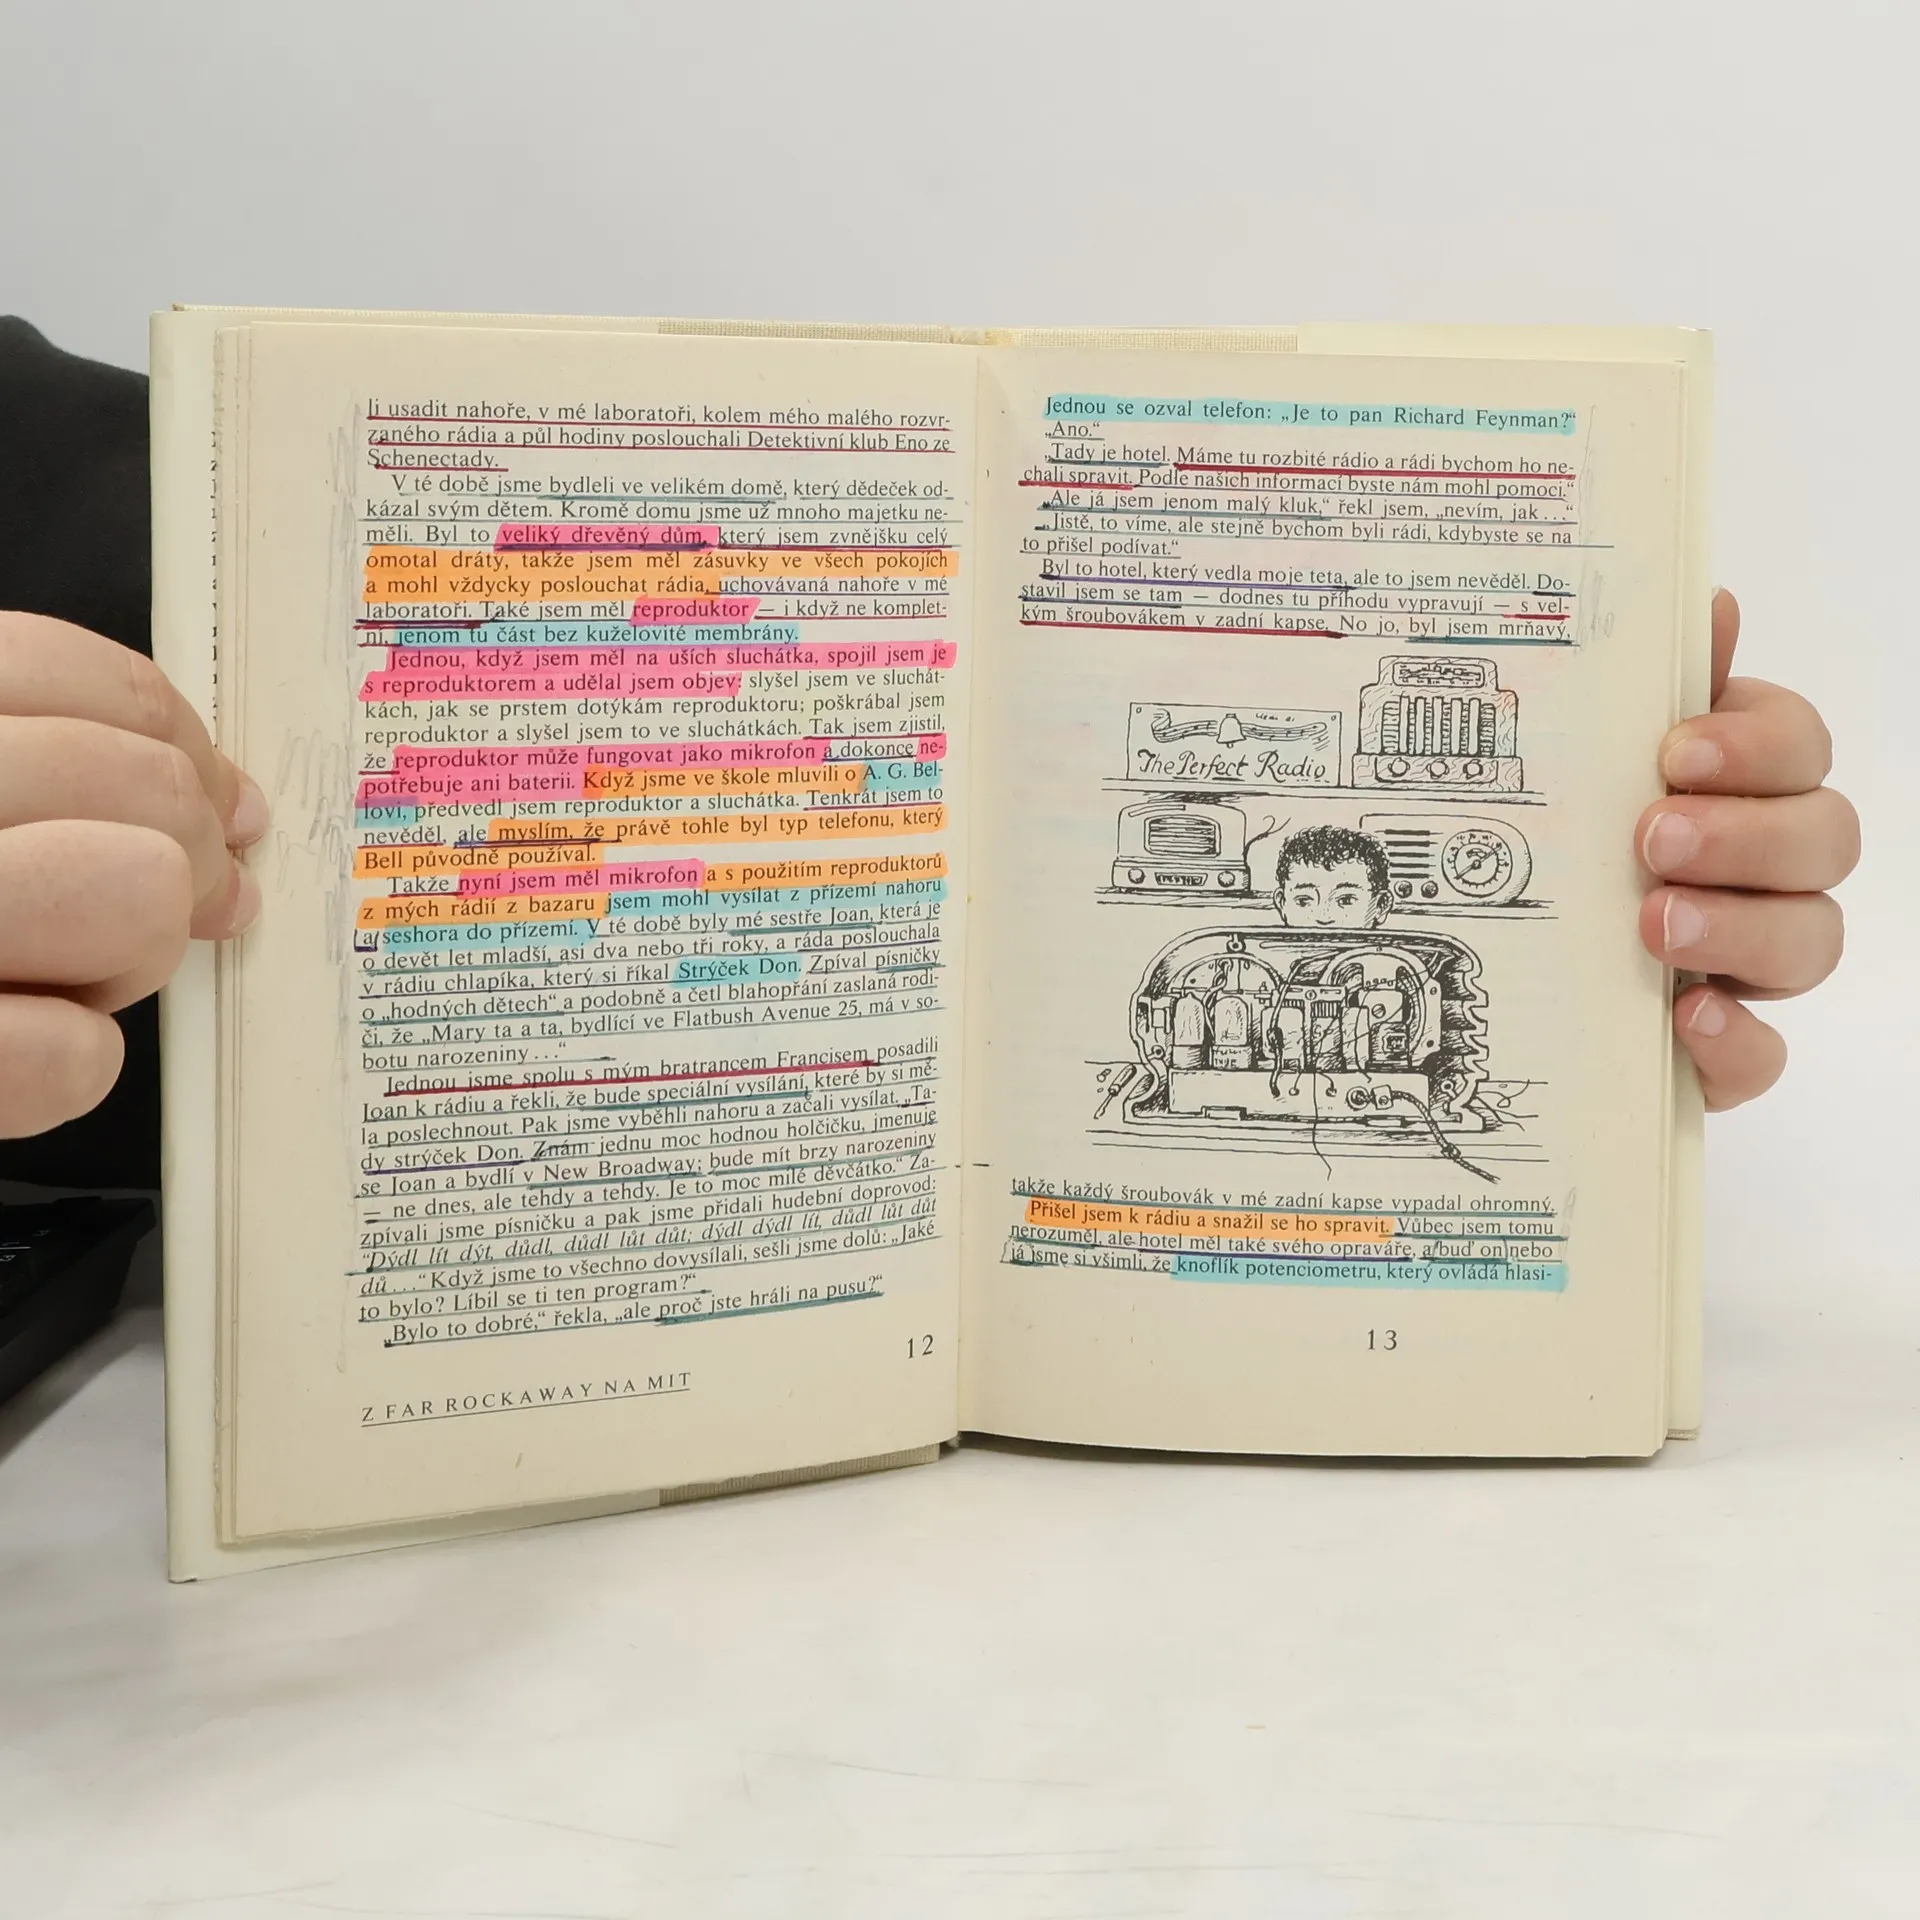 li usadit nahoře, v mé laboratoři, kolem mého malého rozvr-
zaného rádia a půl hodiny poslouchali Detektivní klub Eno ze
Schenectady.
V té době jsme bydleli ve velikém domě, který dědeček od-
kázal svým dětem. Kromě domu jsme už mnoho majetku ne-
měli. Byl to veliký dřevěný dům, který jsem zvnějšku celý
omotal dráty, takže jsem měl zásuvky ve všech pokojích
a mohl vždycky poslouchat rádia, uchovávaná nahoře v mé
laboratoři. Také jsem měl reproduktor — i když ne komplet-
ní, jenom tu část bez kuželovité membrány.
Jednou, když jsem měl na uších sluchátka, spojil jsem je
s reproduktorem a udělal jsem objev: slyšel jsem ve sluchát-
kách, jak se prstem dotýkám reproduktoru; poškrábal jsem
reproduktor a slyšel jsem to ve sluchátkách. Tak jsem zjistil,
že reproduktor může fungovat jako mikrofon a dokonce ne-
potřebuje ani baterii. Když jsme ve škole mluvili o A. G. Bel-
lovi, předvedl jsem reproduktor a sluchátka. Tenkrát jsem to
nevěděl, ale myslím, že právě tohle byl typ telefonu, který
Bell původně používal.
Takže nyní jsem měl mikrofon a s použitím reproduktorů
z mých rádií z bazaru jsem mohl vysílat z přízemí nahoru
a seshora do přízemí. V té době byly mé sestře Joan, která je
o devět let mladší, asi dva nebo tři roky, a ráda poslouchala
v rádiu chlapíka, který si říkal Strýček Don. Zpíval písničky
o „hodných dětech“ a podobně a četl blahopřání zaslaná rodi-
či, že „Mary ta a ta, bydlící ve Flatbush Avenue 25, má v so-
botu narozeniny ...“
Jednou jsme spolu s mým bratrancem Francisem posadili
Joan k rádiu a řekli, že bude speciální vysílání, které by si mě-
la poslechnout. Pak jsme vyběhli nahoru a začali vysílat. „Ta-
dy strýček Don. Znám jednu moc hodnou holčičku, jmenuje
se Joan a bydlí v New Broadway; bude mít brzy narozeniny
— ne dnes, ale tehdy a tehdy. Je to moc milé děvčátko.“ Za-
zpívali jsme písničku a pak jsme přidali hudební doprovod:
“Dýdl lít dýt, důdl, důdl lůt důt; dýdl dýdl lít, důdl lůt důt
dů ...“ Když jsme to všechno dovysílali, sešli jsme dolů: „Jaké
to bylo? Líbil se ti ten program?“
„Bylo to dobré,“ řekla, „ale proč jste hráli na pusu?“
12
Z FAR ROCKAWAY NA MIT
Jednou se ozval telefon: „Je to pan Richard Feynman?“
„Ano.“
„Tady je hotel. Máme tu rozbité rádio a rádi bychom ho ne-
chali spravit. Podle našich informací byste nám mohl pomoci.“
„Ale já jsem jenom malý kluk,“ řekl jsem, „nevím, jak ...“
„Jistě, to víme, ale stejně bychom byli rádi, kdybyste se na
to přišel podívat.“
Byl to hotel, který vedla moje teta, ale to jsem nevěděl. Do-
stavil jsem se tam — dodnes tu příhodu vypravují — s vel-
kým šroubovákem v zadní kapse. No jo, byl jsem mrňavý,
The Perfect Radio
takže každý šroubovák v mé zadní kapse vypadal ohromný.
Přišel jsem k rádiu a snažil se ho spravit. Vůbec jsem tomu
nerozuměl, ale hotel měl také svého opraváře, a buď on nebo
já jsme si všimli, že knoflík potenciometru, který ovládá hlasi-
13